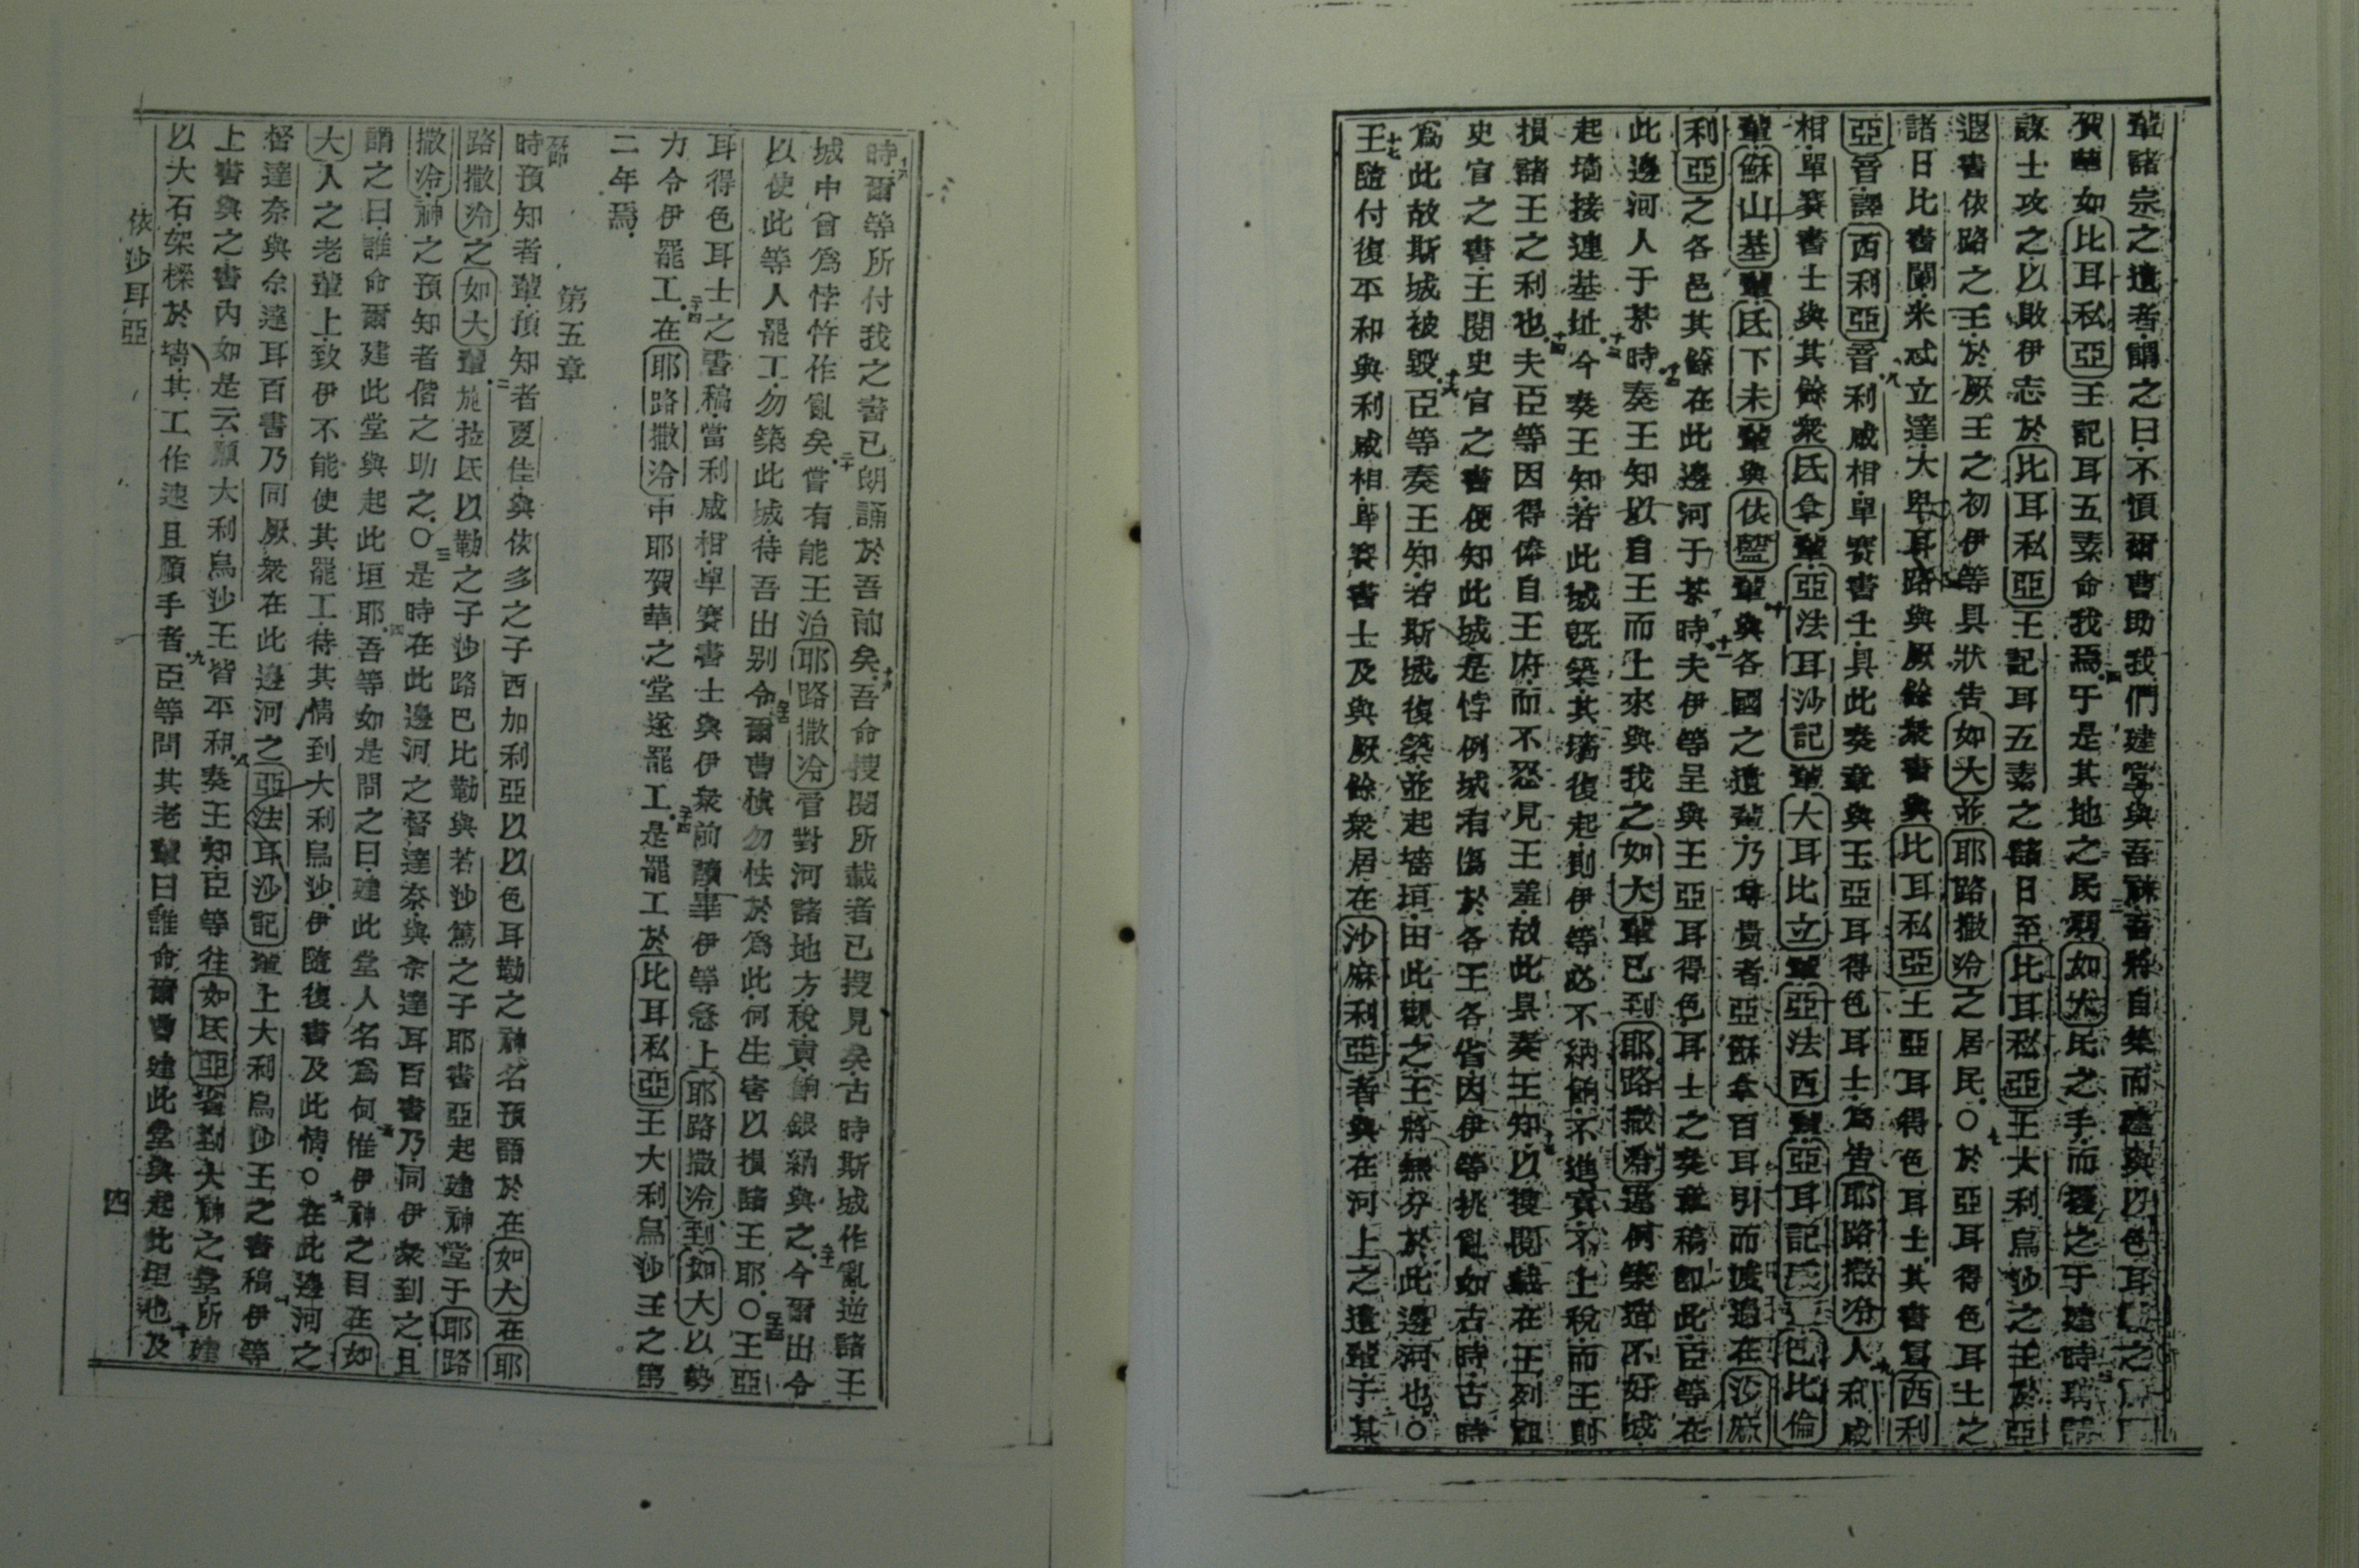 輩諸宗之遺者謂之曰不慎爾曹助我們建堂與吾神吾將自集而建與以色耳之
賀華如比耳私亞王記耳五素命我焉于是其地之民弱如大民之手而擾之于建時
謀士攻之以敗伊志於比耳私亞王記耳五素之諸日至比耳私亞王大利烏沙之王於亞
遐書依路之王於厥王之初伊等具狀告如大並耶路撒冷之居民○於亞耳得色耳士之
諸日比書闌米忒立達大卑耳路與厥餘衆書與比耳私亞王亞耳得色耳士其書寫西利
亞音譯西利亞音利威相單賽書士具此奏章與王亞耳得色耳士為告耶路撒冷人利威
相單賽書士與其餘衆氐拿輩亞法耳沙記輩大耳比立輩亞法西輩亞耳記氐亞巴比倫
輩蘇山基輩氐下未輩與依藍輩與各國之遺輩乃尊貴者亞蘇拿百耳引而渡過在沙麻
利亞之各邑其餘在此邊河于某時夫伊等呈與王亞耳得色耳士之奏章稿即此臣等在
此邊河人于某時奏王知以自王而上來與我之如大輩已到耶路撒冷逞例築造不好城
起墻接連基址今奏王知若此城既築其墻復起則伊等必不納餉不進貢不上稅而王則
損諸王之利也夫臣等因得俸自王府而不忍見王羞故此具奏王知以搜閱載在王列祖
史官之書王閱史官之書便知此城是悖例城有傷於各王各省因伊等挑亂如古時古時
為此故斯城被毀臣等奏王知若斯城復築並起墻垣由此觀之王將無分於此邊河也○
王隨付復平和與利威相單賽書士及與厥餘衆居在沙麻利亞者與在河上之遺輩于某
時爾等所付我之書已朗誦於吾前矣吾命搜閱所載者已搜見矣古時斯城作亂逆諸王
城中曾為悖忤作亂矣嘗有能王治耶路撒冷管對河諸地方稅貢餉銀納與之今爾出令
以使此等人罷工勿築此城待吾出别令爾曹慎勿怯於為此何生害以損諸王耶○王亞
耳得色耳士之書稿當利威相單賽書士與伊衆前讀畢伊等急上耶路撒冷到如大以勢
力令伊罷工在耶路撒冷中耶賀華之堂遂罷工是罷工於比耳私亞王大利烏沙王之第
二年焉
第五章
節
時預知者輩預知者夏佳與依多之子西加利亞以以色耳勒之神名預語於在如大在耶
路撒冷之如大輩施拉氐以勒之子沙路巴比勒與若沙篤之子耶書亞起建神堂于耶路
撒冷神之預知者偕之助之○是時在此邊河之督達奈與佘達耳百書乃同伊衆到之且
謂之曰誰命爾建此堂與起此垣耶吾等如是問之曰建此堂人名為何惟伊神之目在如
大人之老輩上致伊不能使其罷工待其情到大利烏沙伊隨復書及此情○在此邊河之
督達奈與佘達耳百書乃同厥衆在此邊河之亞法耳沙記輩上大利烏沙王之書稿伊等
上書與之書內如是云願大利烏沙王皆平和奏王知臣等往如氐亞省到大神之堂所建
以大石架樑於墻其工作速且順手者臣等問其老輩曰誰命爾曹建此堂與起此垣也及
依沙耳亞
四